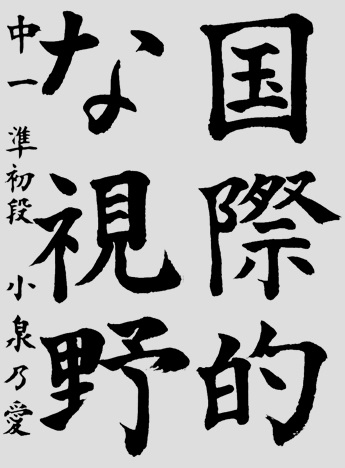 国際的
な視野
中一 準初段 小泉乃愛